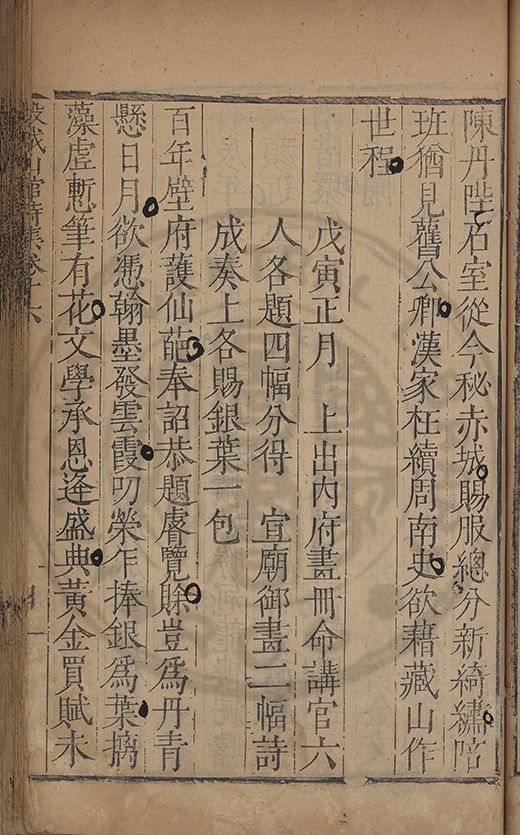 陳丹陛石室從今秘赤城賜服總分新綺繡陪
班猶見舊公卿漢家枉續周南史欲藉藏山作
世程
戊寅正月　上出內府畫冊命講官六
人各題四幅分得　宣廟御畫二幅詩
成奏上各賜銀葉一包
百年壁府護仙葩奉詔恭題睿覽賒豈爲丹青
懸日月欲憑翰墨發雲霞叨榮乍捧銀爲葉摛
藻虛慙筆有花文學承恩逢盛典黃金買賦未
穀城山館詩集卷十六